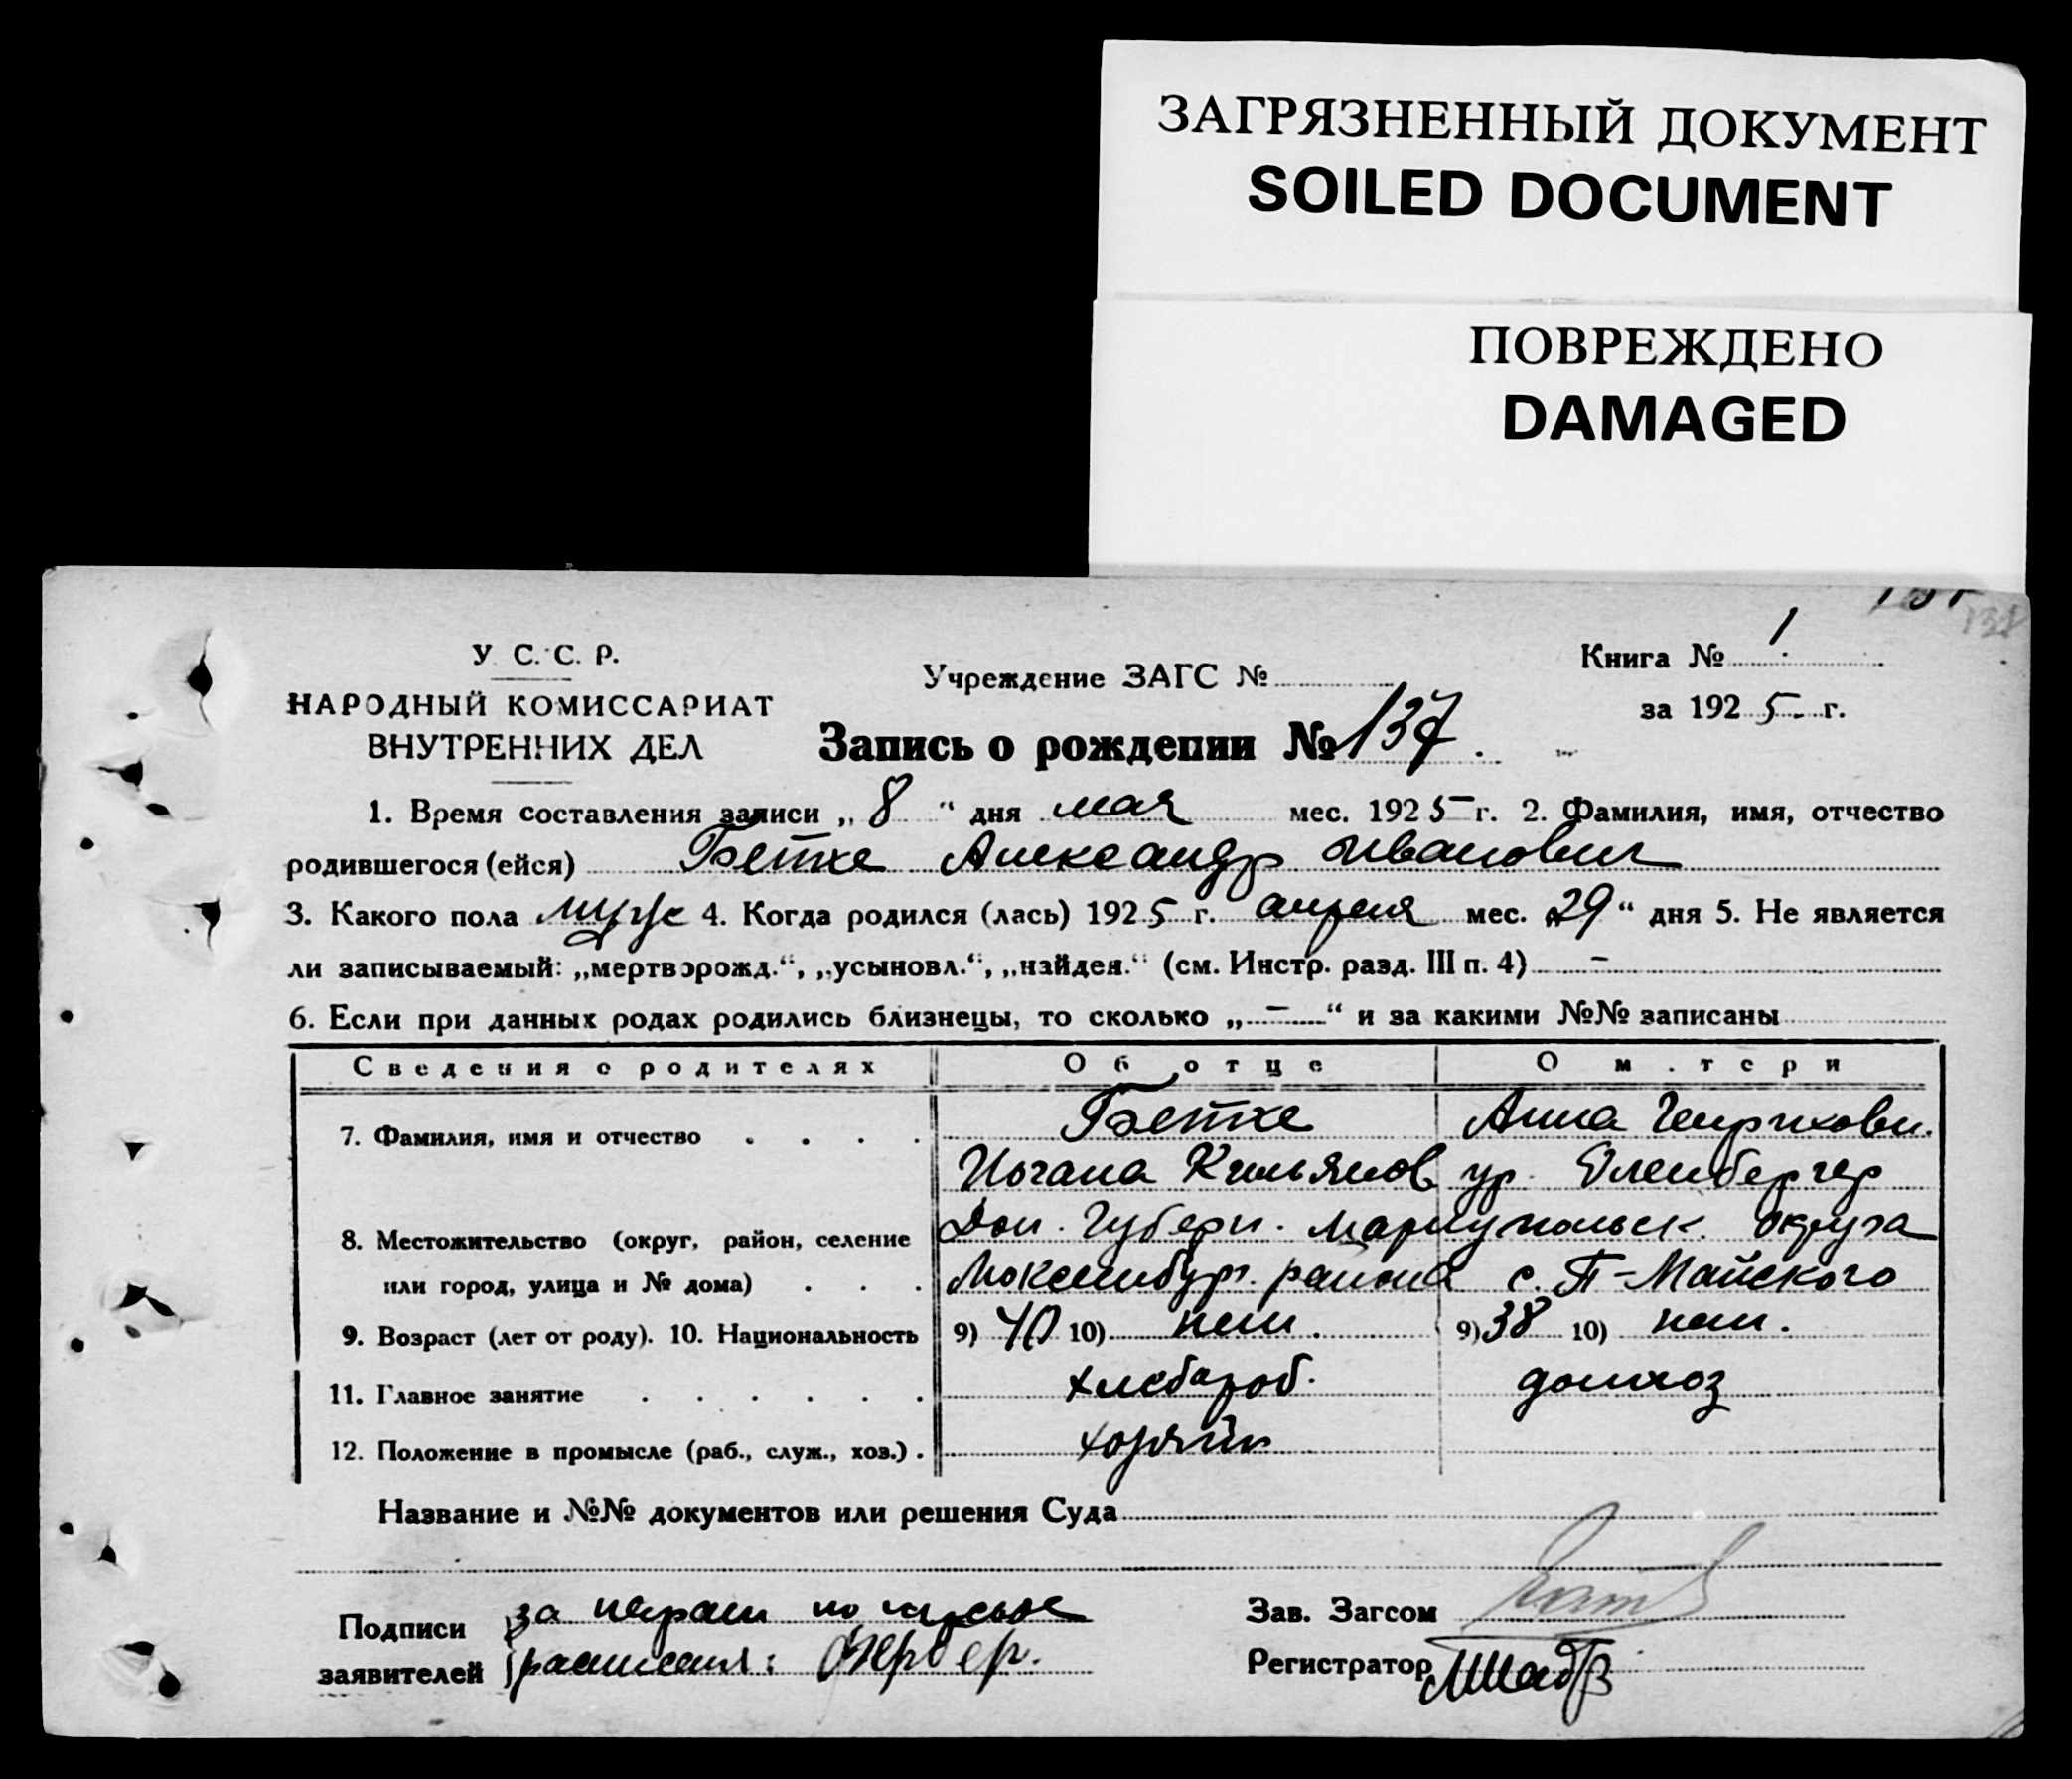 ЗАГРЯЗНЕННЫЙ ДОКУМЕНТ
SOILED DOCUMENT
ПОВРЕЖДЕНО
DAMAGED
138
У. С. С. Р.
Книга № 1
НАРОДНЫЙ КОМИССАРИАТ
ВНУТРЕННИХ ДЕЛ
Учреждение ЗАГС №
за 1925 г.
Запись о рождении № 137.
1. Время составления записи „ 8 “ дня мая мес. 1925 г. 2. Фамилия, имя, отчество
родившегося (ейся) Бетхе Александр Иванович
3. Какого пола муж 4. Когда родился (лась) 1925 г. апреля мес. „29“ дня 5. Не является
ли записываемый: „мертворожд.“, „усыновл.“, „найден.“ (см. Инстр. разд. III п. 4) –
6. Если при данных родах родились близнецы, то сколько „ – “ и за какими №№ записаны
Сведения о родителях Об отце О м.тери
7. Фамилия, имя и отчество Бетхе Анна Генриховн.
Иогана Кильянов ур. Оленбергер
8. Местожительство (округ, район, селение Дон. Губерн. Мариупольск. округа
или город, улица и № дома) Люксембург. района с. П-Майского
9. Возраст (лет от роду). 10. Национальность 9) 40 10) нем. 9) 38 10) нем.
11. Главное занятие хлебароб. домхоз
12. Положение в промысле (раб., служ., хоз.) хозяин
Название и №№ документов или решения Суда
Подписи за неграм по
заявителей расписал: Фербер.
Зав. Загсом
Регистратор